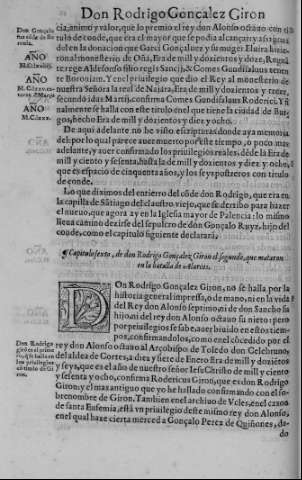 Don Rodrigo Gonçalez Giron
cia, animo y valor, que lo premio el rey don Alonso octauo con ti
tulo de conde, que era el mayor que se podia alcançar; y assi gouer
del en la donacion que Garci Gonçalez y su muger Eluira hizie-
ron al monesterio de Oña, Era de mill y dozientos y doze, Regnã
te rege Aldefonso filio regis Sancij, & Comes Gundisaluus tenen
te Boroniam. Y en el priuilegio que dio el Rey al monesterio de
nuestra Señora la real de Najara, Era de mill y dozientos y treze,
secundo idus Martij, confirma Comes Gundisaluus Roderici. Y fi
nalmente se halla con este titulo en el que tiene la ciudad de Bur-
gos, hecho Era de mill y dozientos y diez y ocho.
De aqui adelante no he visto escripturas donde aya memoria
del por lo qual parece auer muerto por este tiempo, o poco mas
adelante, y auer confirmado los priuilegios reales, desde la Era de
mill y ciento y sesenta, hasta la de mill y dozientos y diez y ocho,
que es espacio de cinquenta años, y los seys postreros con titulo
de conde.
Lo que diximos del entierro del cõde don Rodrigo, que era en
la capilla de Sãtiago del claustro viejo, que se derribo para hazer
el nueuo, que agora ay en la Iglesia mayor de Palencia: lo mismo
sera camino dezirse del sepulcro de don Gonçalo Ruyz, hijo del
conde, como el capitulo siguiente declarará.
¶ Capitulo sexto, de don Rodrigo Gonçalez Giron el segundo, que mataron
en la batalla de Alarcos.
DOn Rodrigo Gonçalez Giron, no se halla por la
historia general impressa, o de mano, ni en la vida
del Rey don Alonso septimo ni de don Sancho su
hijo, ni del rey don Alonso octauo su nieto: pero
por priuilegios se sabe, auer biuido en estos tiem-
pos, confirmandolos, como en el cõcedido por el
rey don Alonso octauo al Arçobispo de Toledo don Celebruno,
del aldea de Cortes, a diez y siete de Enero Era de mill y dozientos
y seys, que es el año de nuestro señor Iesu Christo de mill y ciento
y sesenta y ocho, confirma Rodericus Giron, que es don Rodrigo
Giron; y el mas antiguo que yo he hallado confirmando con el so-
brenombre de Giron. Tambien en el archiuo de Vcles, en el caxon
de santa Eufemia, està vn priuilegio deste mismo rey don Alonso,
en el qual haze cierta merced a Gonçalo Perez de Quiñones, da-
do
Don Gonçalo
AÑO
AÑO
Don Rodrigo